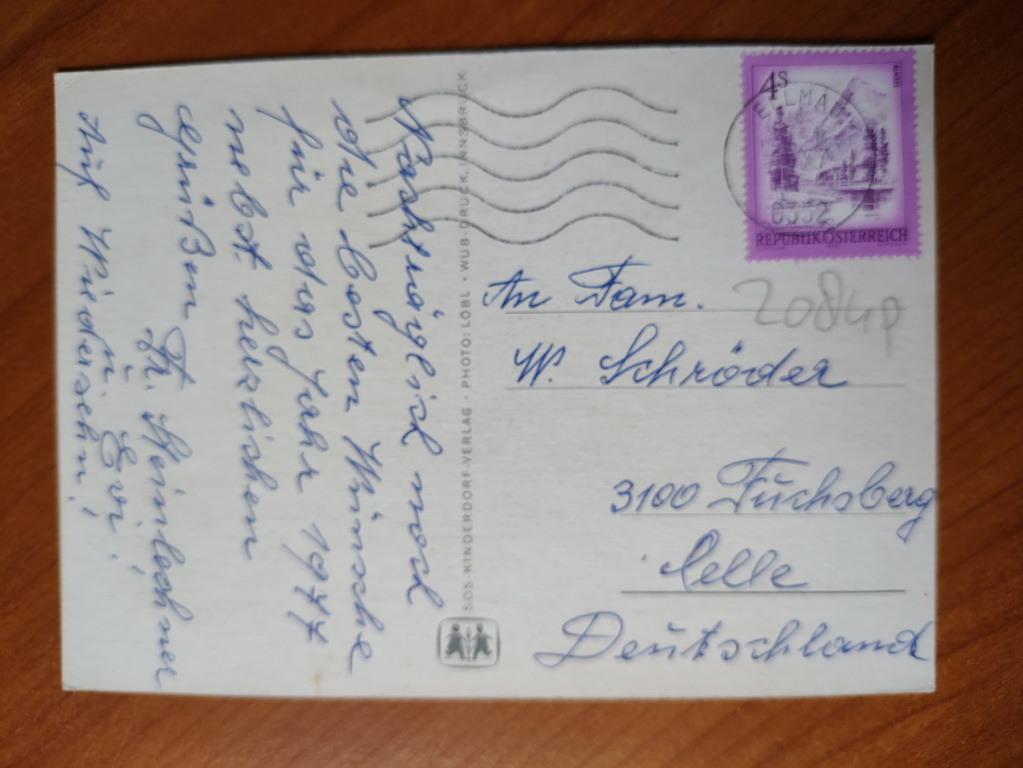 Nachträglich noch
die besten Wünsche
für das Jahr 1977
nebst herzlichen
Grüßen
u. Evi!
Auf Wiedersehn!
SOS-KINDERDORF-VERLAG · PHOTO: LÖBL · WUB-DRUCK, INNSBRUCK
4 S
ALMSEE
ELLMAU
REPUBLIK ÖSTERREICH
An Fam.
W. Schröder
3100 Fuchsberg
Celle
Deutschland